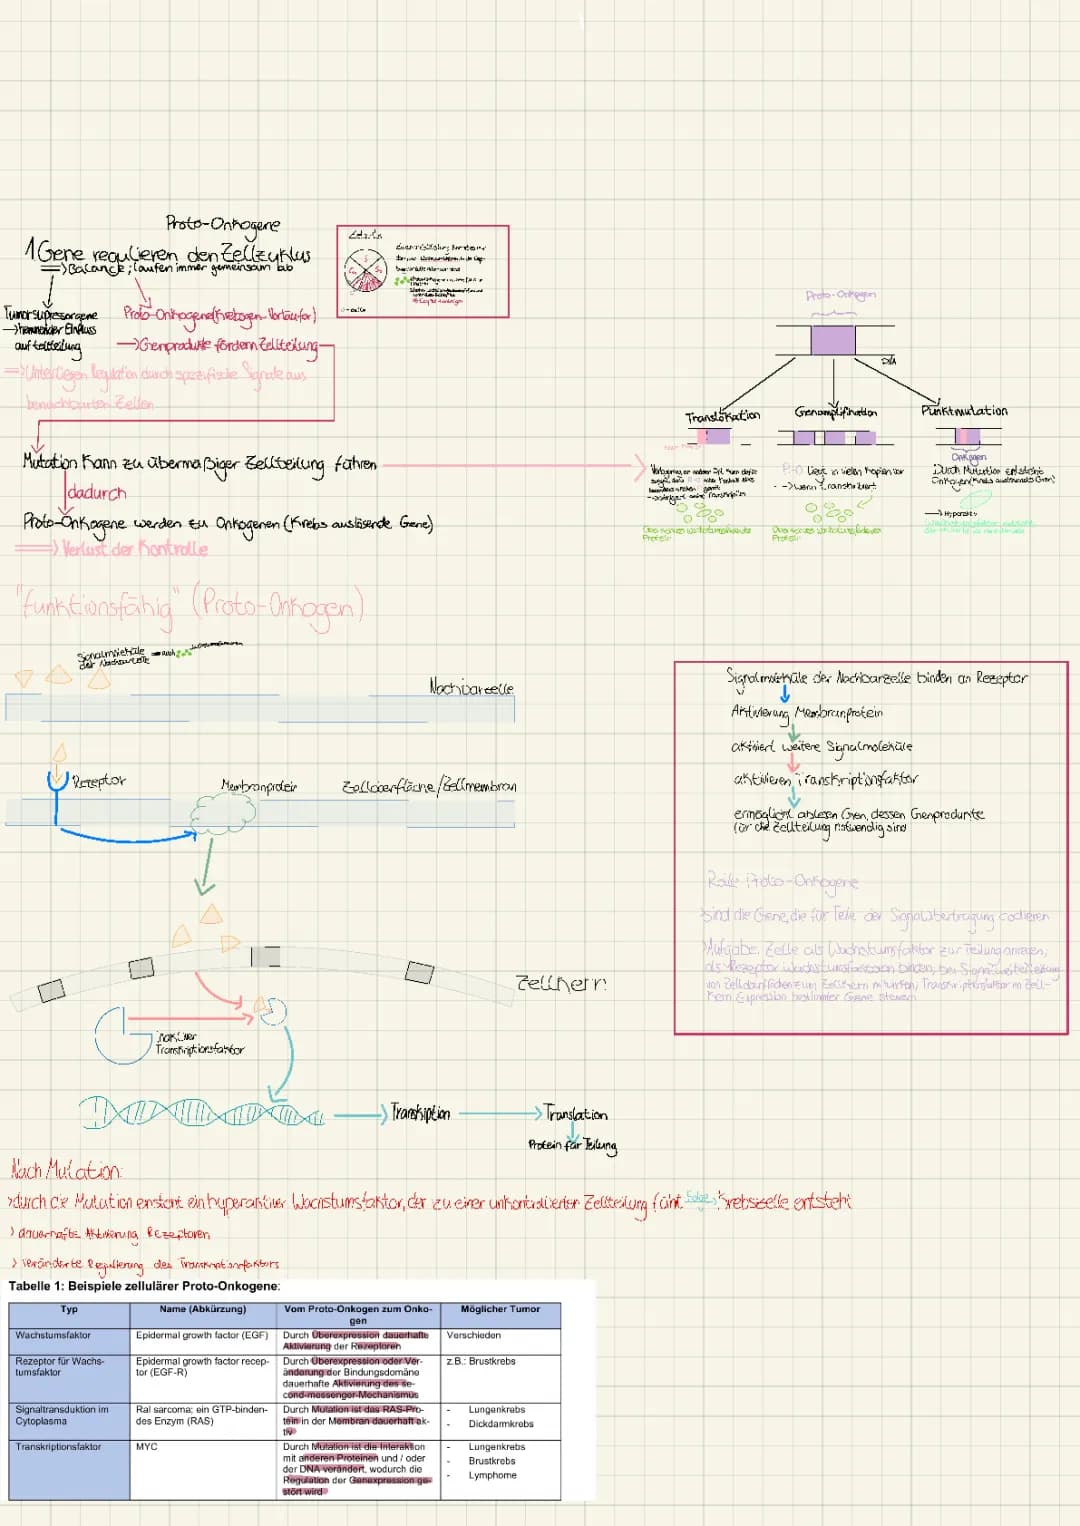 Proto-Onkogene
1 Gene regulieren den Zellzyklus
=> Balance; laufen immer gemeinsam ab
Tumorsupressorgene
-> hemmender Einfluss
auf Zellteilung
Proto-Onkogene (Krebsgen-Vorläufer)
-> Genprodukte fördern Zellteilung
=> Unterliegen Regulation durch spezifische Signale aus
benachbarten Zellen
Mutation kann zu übermäßiger Zellteilung führen
dadurch
Proto-Onkogene werden zu Onkogenen (Krebs auslösende Gene)
=> Verlust der Kontrolle
Proto-Onkogen
DNA
Translokation
Genamplifikation
Punktmutation
Onkogen
P-O liegt in vielen Kopien vor
--> wenn Transkribiert
Durch Mutation entsteht
Onkogen (Krebs auslösendes Gen)
-> Hyperaktiv
"funktionsfähig" (Proto-Onkogen)
Signalmoleküle
der Nachbarzelle
Nachbarzelle
Rezeptor
Membranprotein
Zelloberfläche/Zellmembran
Zellkern
inaktiver
Transkriptionsfaktor
Transkiption
Translation
Protein für Teilung
Signalmoleküle der Nachbarzelle binden an Rezeptor
Aktivierung Membranprotein
aktiviert weitere Signalmoleküle
aktivieren Transkriptionsfaktor
ermöglicht ablesen Gen, dessen Genprodukte
für die Zellteilung notwendig sind
Rolle Proto-Onkogene
sind die Gene, die für Teile der Signalübertragung codieren
Aufgabe: Zelle als Wachstumsfaktor zur Teilung anregen,
als Rezeptor Wachstumsfaktoren binden, bei Signalweiterleitung
von Zelloberflächen zum Zellkern mitwirken, Transkriptionsfaktor im Zell-
kern Expression bestimmter Gene steuern
Nach Mutation:
> durch die Mutation enstent ein hyperaktiver Wachstumsfaktor, der zu einer unkontrollierten Zellteilung führt Folge Krebszelle entsteht
> dauerhafte Aktivierung Rezeptoren
> veränderte Regulierung des Transkriptionsfaktors
Tabelle 1: Beispiele zellulärer Proto-Onkogene:
Typ
Name (Abkürzung)
Vom Proto-Onkogen zum Onko-
gen
Möglicher Tumor
Wachstumsfaktor
Epidermal growth factor (EGF)
Durch Überexpression dauerhafte
Aktivierung der Rezeptoren
Verschieden
Rezeptor für Wachs-
tumsfaktor
Epidermal growth factor recep-
tor (EGF-R)
Durch Überexpression oder Ver-
änderung der Bindungsdomäne
dauerhafte Aktivierung des se-
cond-messenger-Mechanismus
z.B.: Brustkrebs
Signaltransduktion im
Cytoplasma
Ral sarcoma; ein GTP-binden-
des Enzym (RAS)
Durch Mutation ist das RAS-Pro-
tein in der Membran dauerhaft ak-
tiv
- Lungenkrebs
- Dickdarmkrebs
Transkriptionsfaktor
MYC
Durch Mutation ist die Interaktion
mit anderen Proteinen und / oder
der DNA verändert, wodurch die
Regulation der Genexpression ge-
stört wird
- Lungenkrebs
- Brustkrebs
- Lymphome